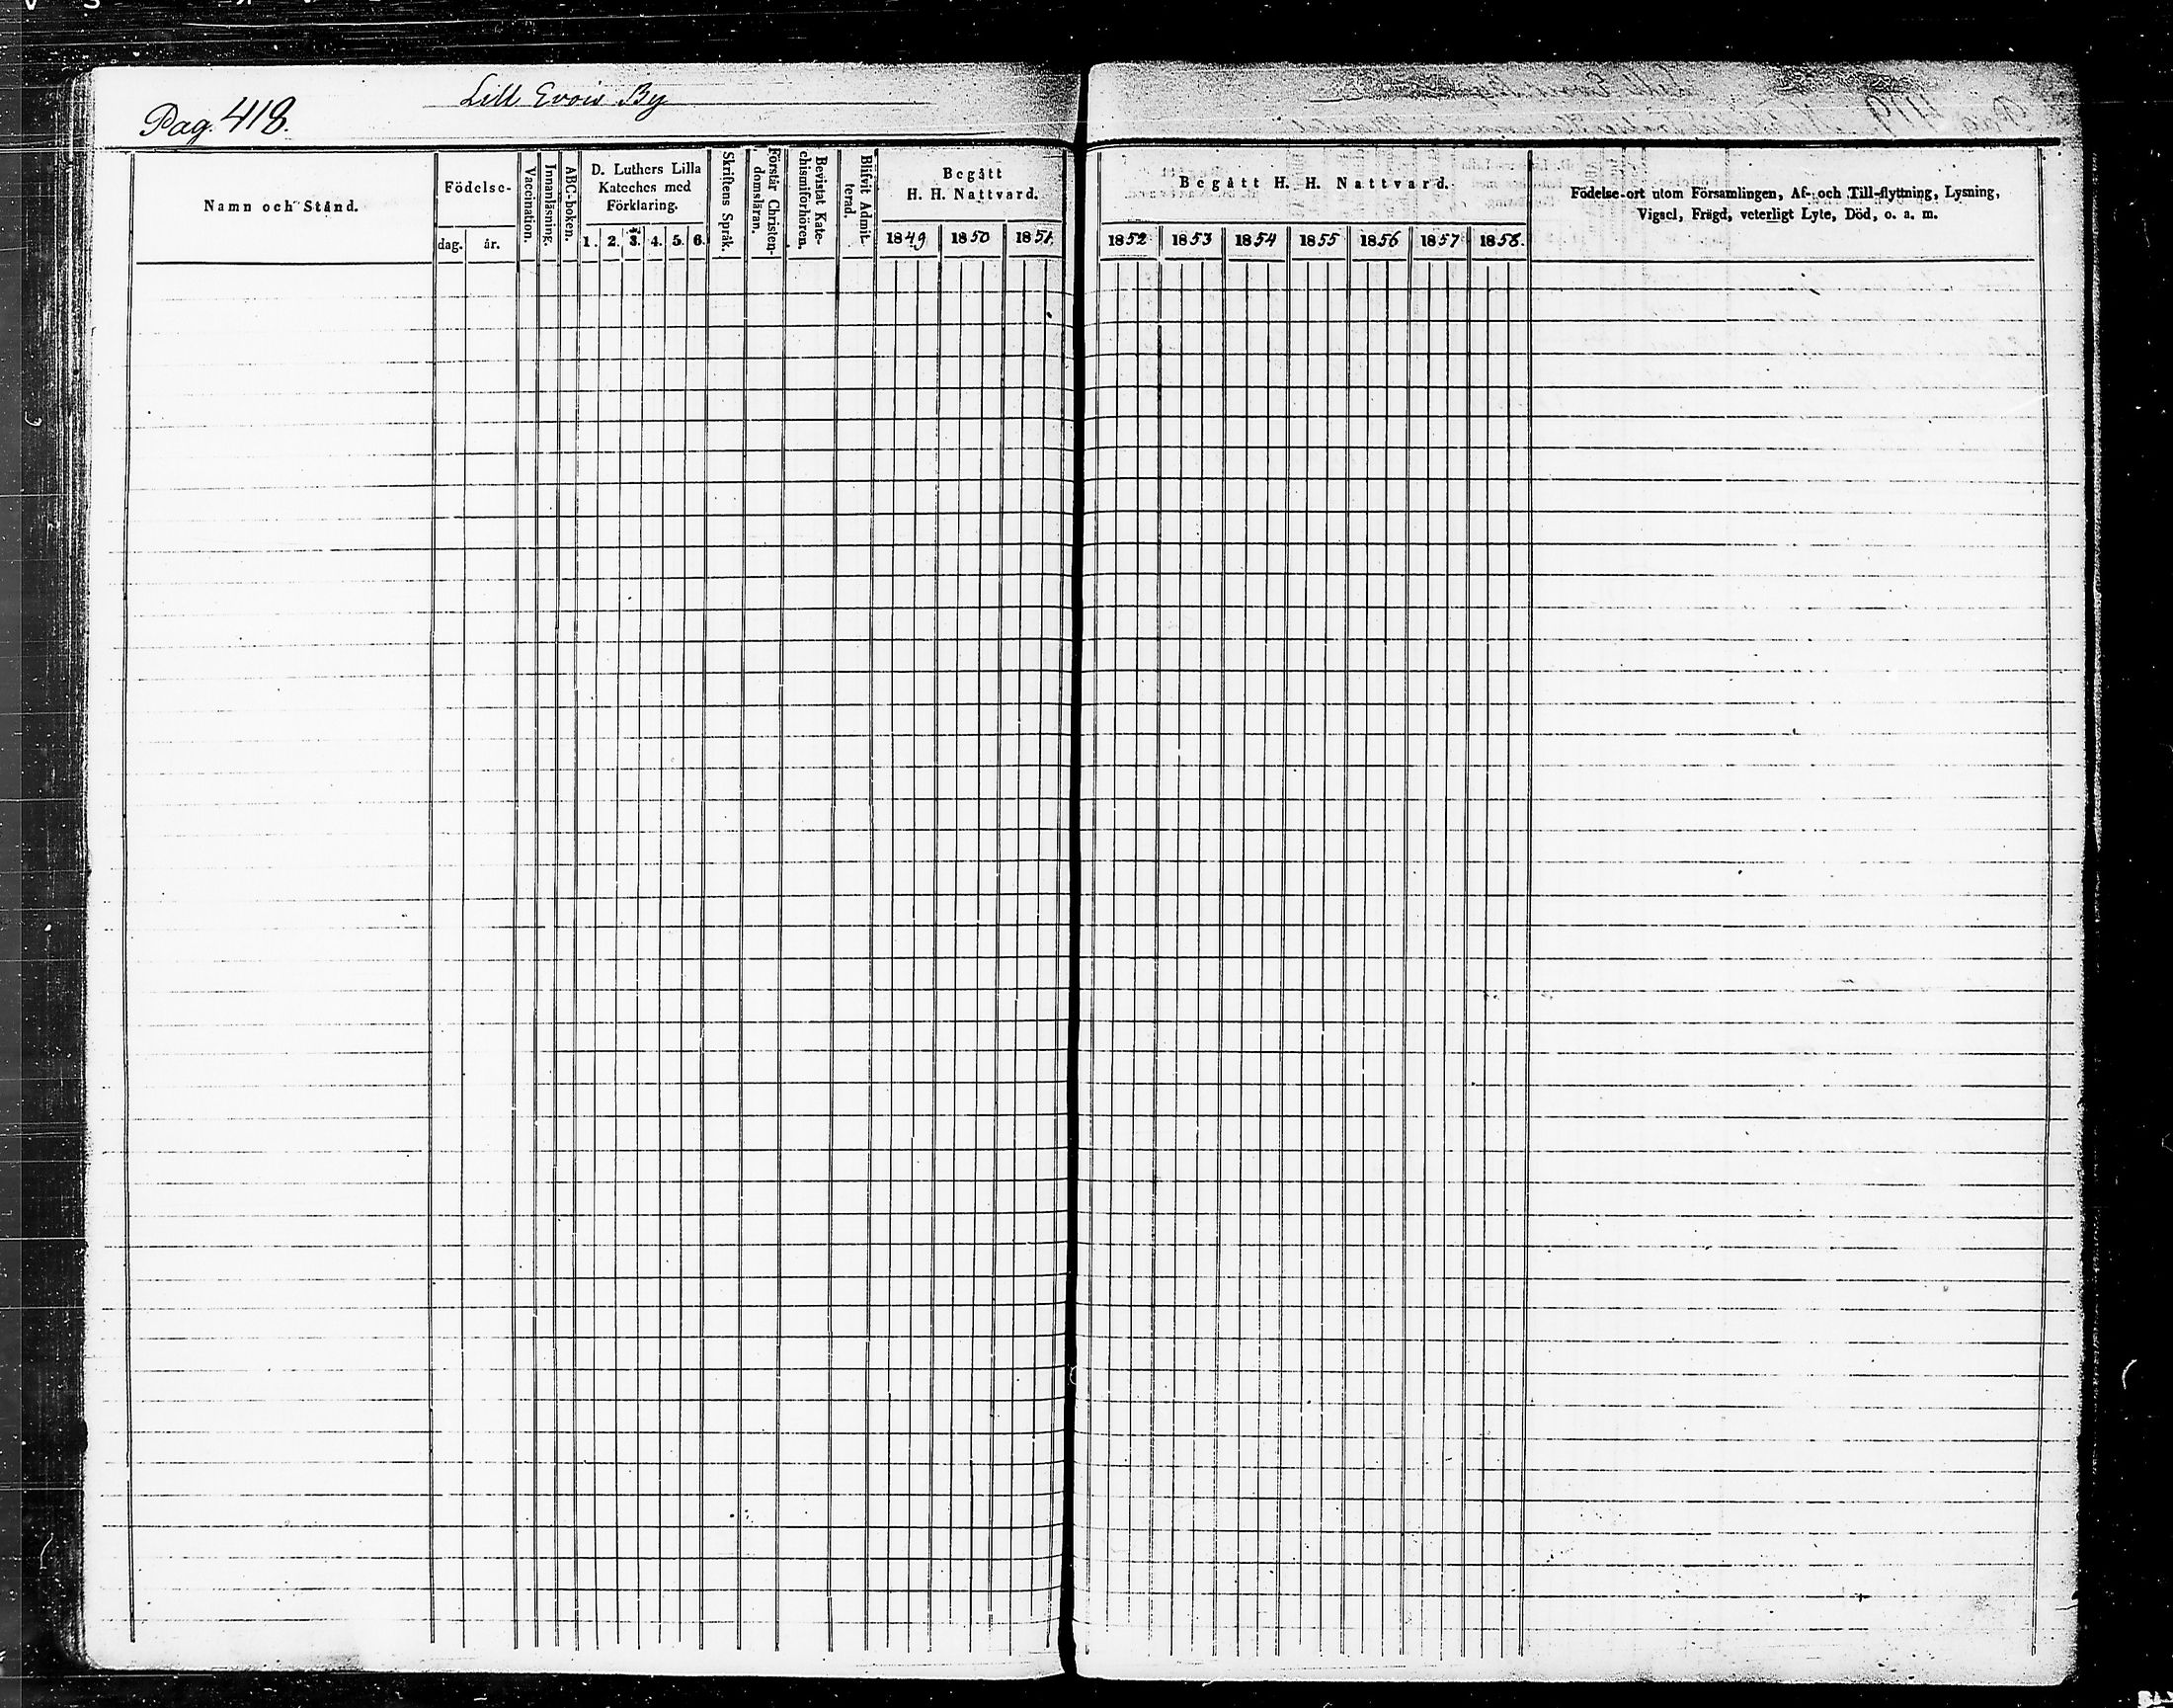 Lill Evois By
Pag. 418.
Namn och Stånd.
Födelse-
dag. år.
Vaccination.
Innanläsning.
ABC-boken.
D. Luthers Lilla
Kateches med
Förklaring.
1. 2. 3. 4. 5. 6.
Skriftens Språk.
Förstår Christen-
domsläran.
Bevistat Kate-
chismiförhören.
Blifvit Admit-
terad.
Begått
H. H. Nattvard.
1849 1850 1851.
Begått H. H. Nattvard.
1852 1853 1854 1855 1856 1857 1858.
Födelse-ort utom Församlingen, Af- och Till-flyttning, Lysning,
Vigsel, Frägd, veterligt Lyte, Död, o. a. m.